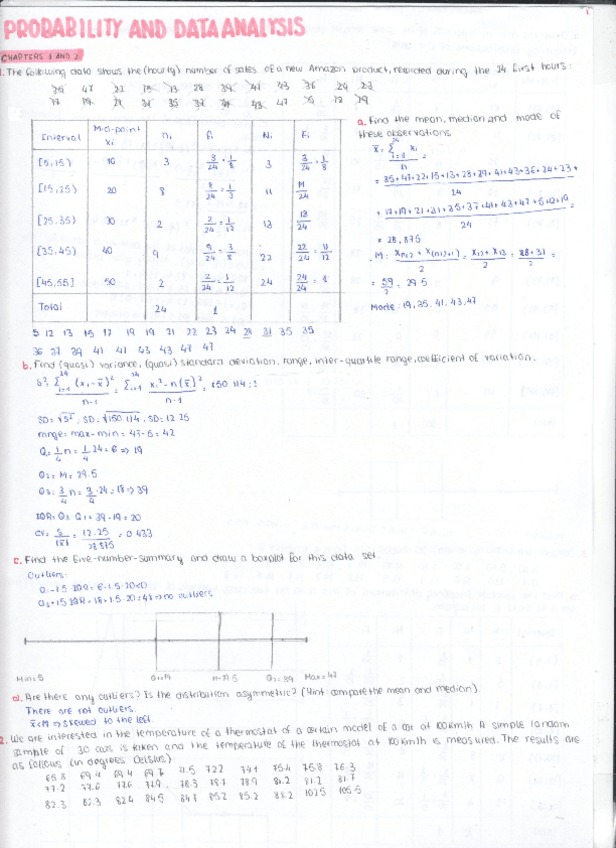 PROBABILITY AND DATA ANALYSIS
CHAPTERS 1 AND 2
1. The following data shows the (hourly) number of sales of a new Amazon product, recorded during the 24 first hours:
47 22 15 13 28 39 41 43 36 24 23
17 19 21 31 35 37 41 43 47 5 12 19
a. Find the mean, median and mode of these observations
Interval Mid-point xi ni fi Ni Fi
[5,15) 10 3 3/24 = 1/8 3 3/24 = 1/8
[15,25) 20 8 8/24 = 1/3 11 11/24
[25,35) 30 2 2/24 = 1/12 13 13/24
[35,45) 40 9 9/24 = 3/8 22 22/24 = 11/12
[45,55] 50 2 2/24 = 1/12 24 24/24 = 1
Total 24 1
= 35+47+22+15+13+28+39+41+43+36+24+23+
24
+17+19+21+31+35+37+41+43+47+5+12+19
24
= 28,875
= 59/2 = 29.5
Mode: 19, 35, 41, 43, 47
5 12 13 15 17 19 19 21 22 23 24 28 31 35 35
36 37 39 41 41 43 43 47 47
b. Find (quasi) variance, (quasi) standard deviation, range, inter-quartile range, coefficient of variation.
SD = √S² . SD = √150.114 . SD = 12.25
range = max - min = 47 - 5 = 42
Q₁ = 1/4 n = 1/4 · 24 = 6 => 19
Q₂ = M = 29.5
Q₃ = 3/4 n = 3/4 · 24 = 18 => 39
IQR = Q₃ - Q₁ = 39 - 19 = 20
c. Find the five-number-summary and draw a boxplot for this data set.
Outliers:
Min = 5 Q₁ = 19 Q₃ = 39 Max = 47
d. Are there any outliers? Is the distribution asymmetric? (Hint: compare the mean and median).
There are not outliers.
x̄ < M => skewed to the left.
2. We are interested in the temperature of a thermostat of a certain model of a car at 100km/h. A simple random
sample of 30 cars is taken and the temperature of the thermostat at 100km/h is measured. The results are
as follows (in degrees Celsius):
65.8 69.4 69.4 69.7 71.5 72.2 74.1 75.4 75.8 76.3
77.2 77.6 77.6 77.9 78.3 78.7 78.9 81.2 81.2 81.7
82.3 82.3 82.4 84.5 84.8 85.2 85.2 88.2 102.5 105.5